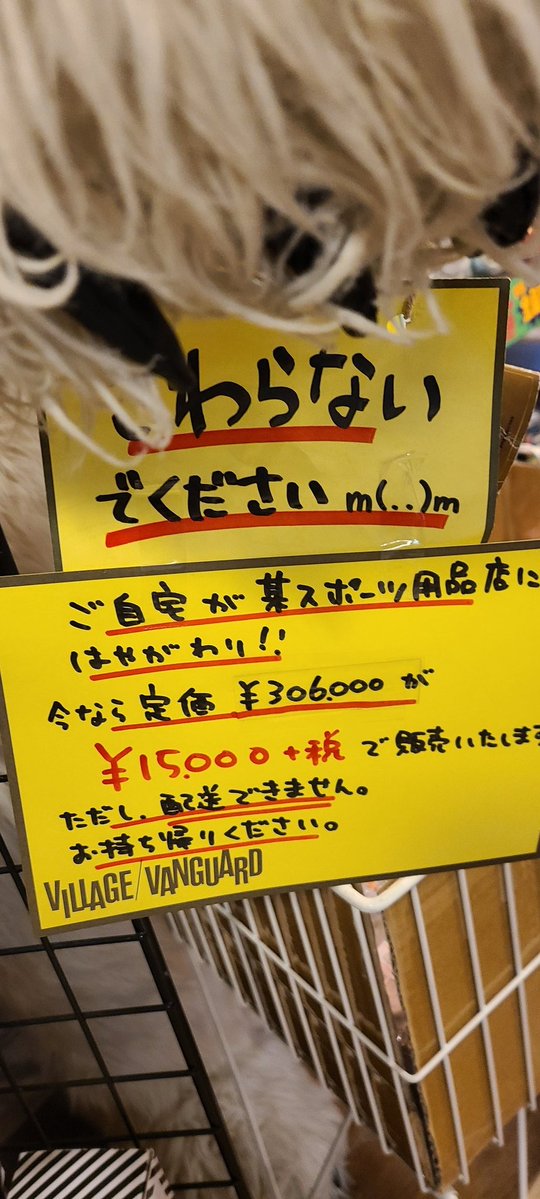 さわらない
でください m(..)m
ご自宅が某スポーツ用品店に
はやがわり!!
今なら定価 ¥306.000 が
¥15.000+税 で販売いたします
ただし、配送できません。
お持ち帰りください。
VILLAGE/VANGUARD